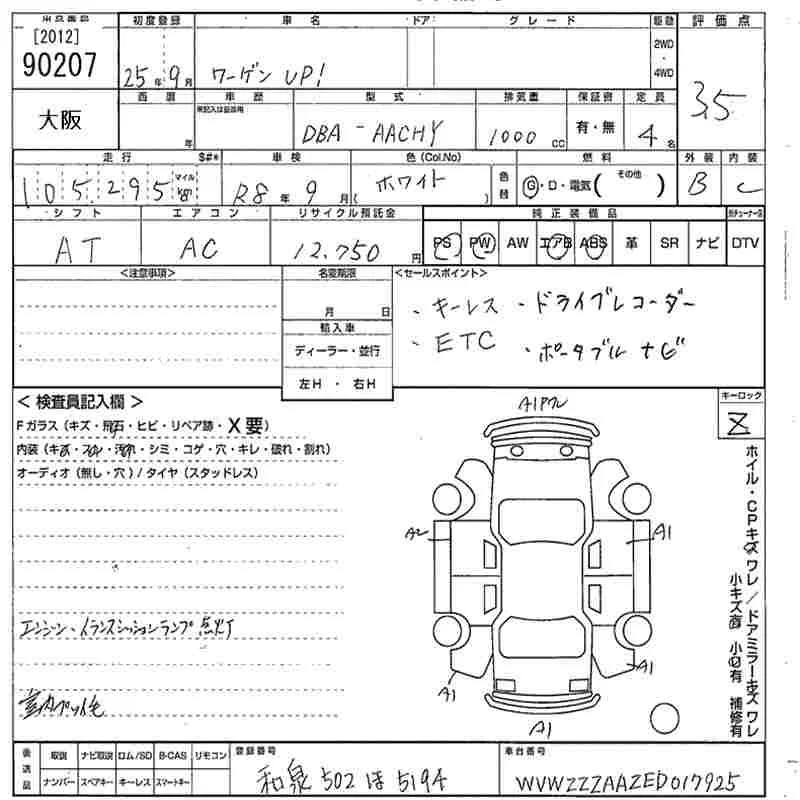 [2012]
90207
大阪
初度登録 車名 ドア グレード 駆動 評価点
25年9月 ワーゲン UP! 2WD・4WD 3.5
西暦 車歴 型式 排気量 保証書 定員
年 DBA-AACHY 1000cc 有・無 4名
走行 S#* 車検 色(Col.No) 燃料 外装 内装
105,295 マイル km R8年9月 ホワイト 色替 G・D・電気(その他) B C
シフト エアコン リサイクル預託金 純正装備品
AT AC 12,750円 PS PW AW エアB ABS 革 SR ナビ DTV
<注意事項> 名変期限 <セールスポイント>
月 日
・キーレス ・ドライブレコーダー
輸入車
・ETC ・ポータブルナビ
ディーラー・並行
左H・右H
<検査員記入欄> キーロック
A1ワレ
Z
Fガラス(キズ・飛石・ヒビ・リペア跡・X要)
内装(キズ・スレ・汚れ・シミ・コゲ・穴・キレ・破れ・割れ)
オーディオ(無し・穴)/タイヤ(スタッドレス)
A2 A1
ホイル・CPキズ ワレ/ドアミラーキズ ワレ
小キズ有 小凹有 補修有
エンジン・トランスミッションランプ点灯
A1 A1
A1
後送品 取説 ナビ取説 ロム/SD B-CAS リモコン 登録番号 車台番号
ナンバー スペアキー キーレス スマートキー 和泉 502 ほ 5194 WVWZZZAAZED017925